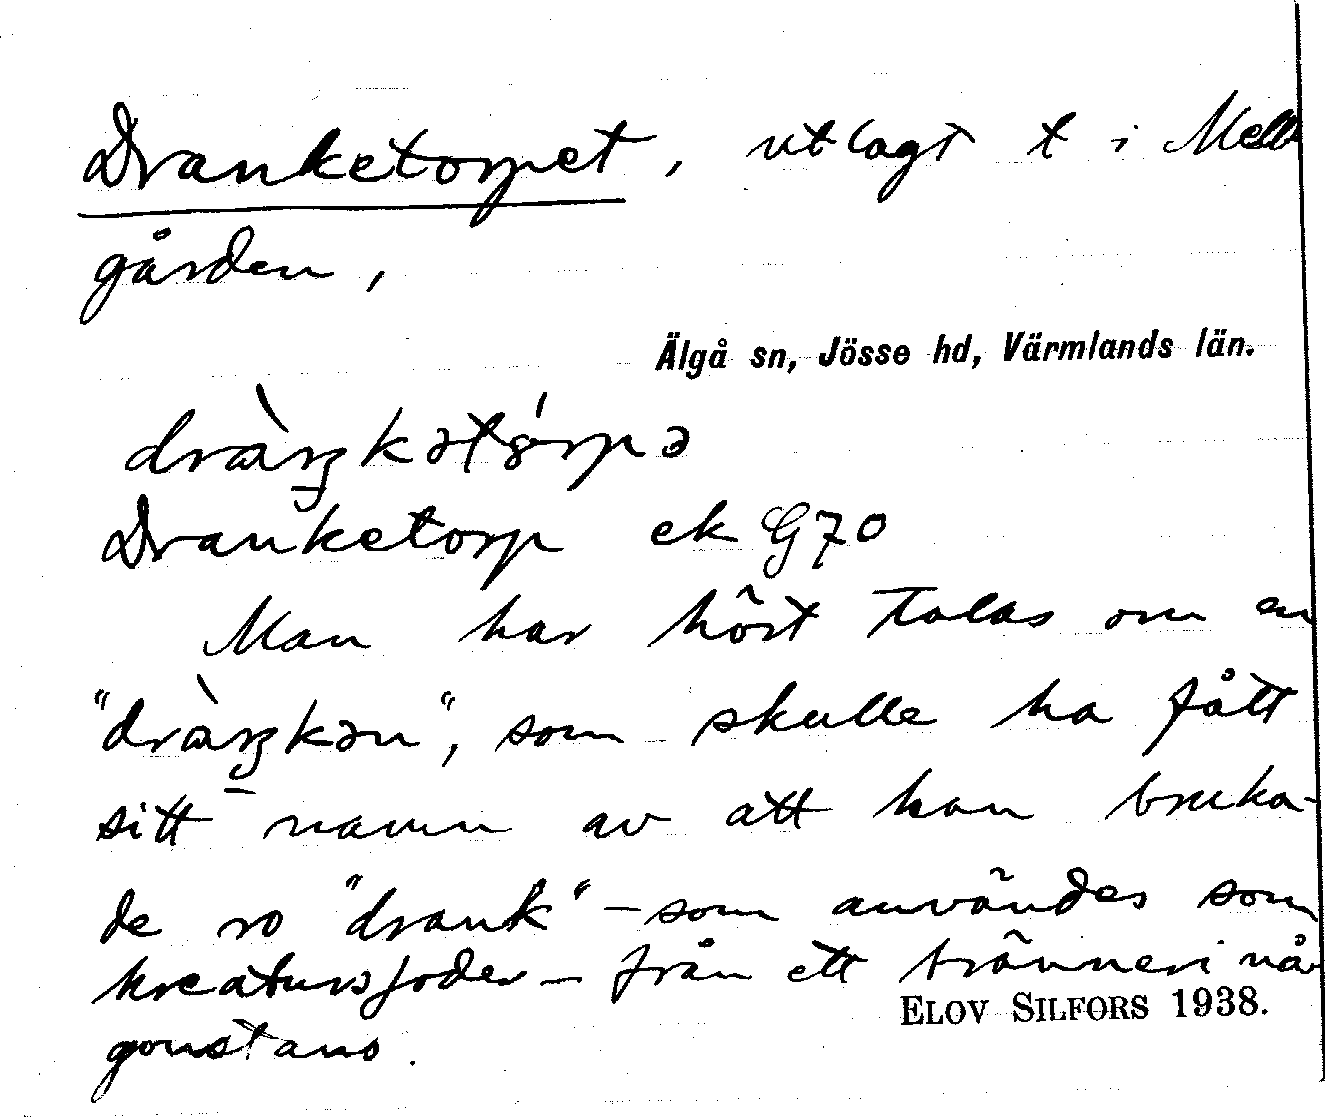 Dranketorpet, utlagt t i Mell
gården,
Älgå sn, Jösse hd, Värmlands län.
Dranketorp ek G70
Man har hört talas om en
", som skulle ha fått
sitt namn av att han bruka-
de ro "drank" – som användes som
kreatursfoder – från ett bränneri nå-
gonstans.
ELOV SILFORS 1938.